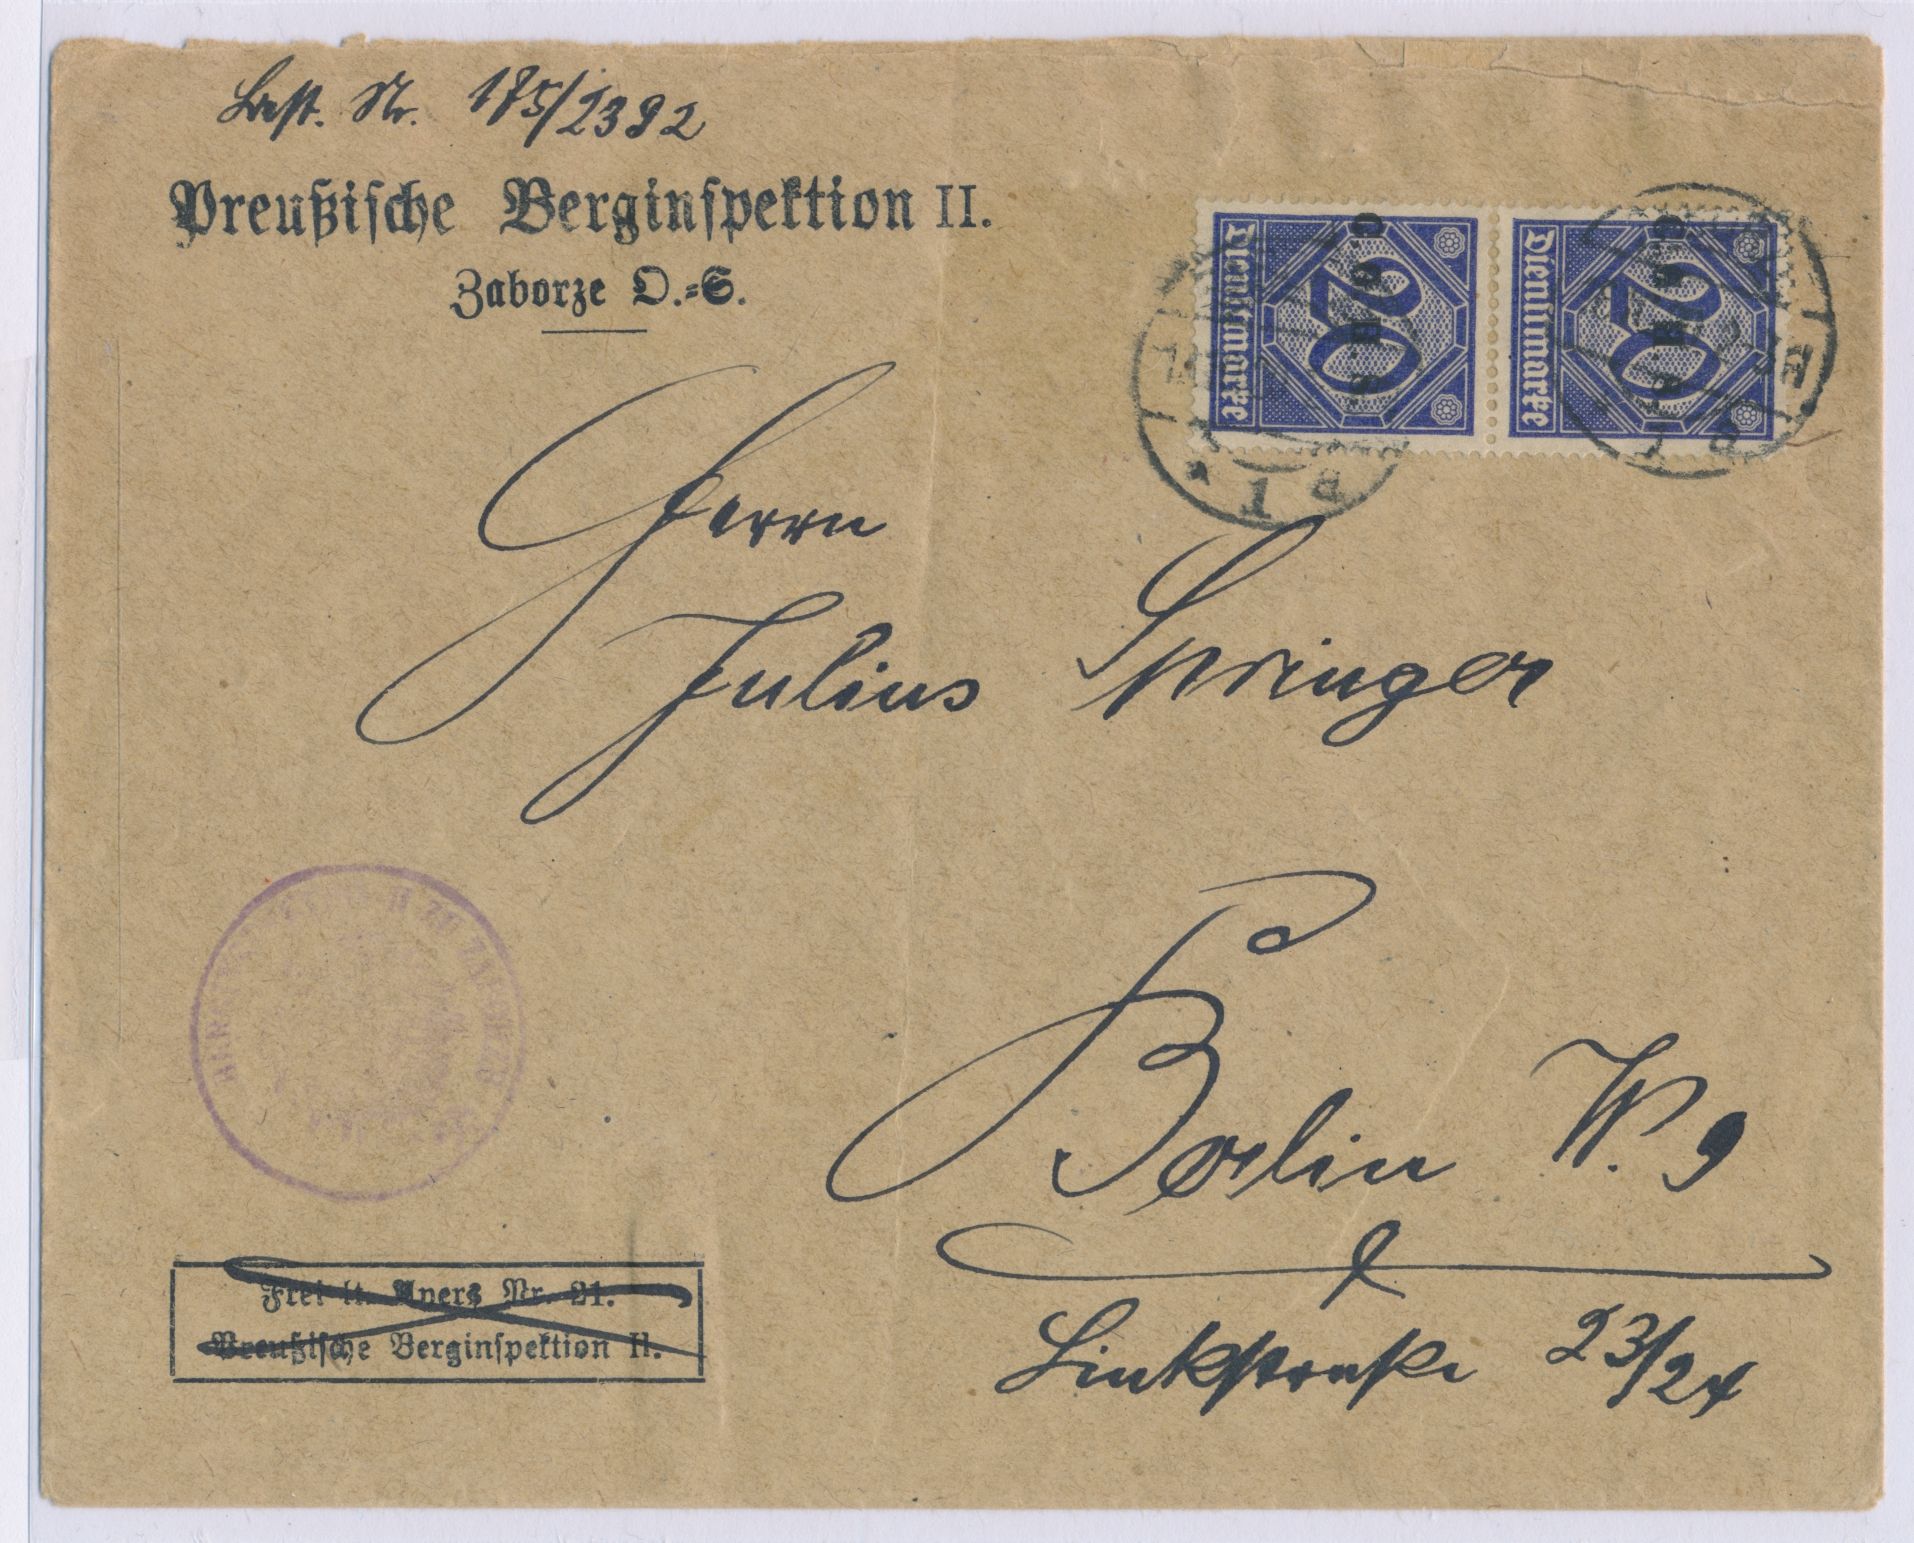 Best. Nr. 175/2392
Preußische Berginspektion II.
Zaborze O.-S.
Dienstmarke 20 C.G.H.S.
Dienstmarke 20 C.G.H.S.
Herrn
Julius Springer
Berlin W. 9
Linkstraße 23/24
II ZU ZABORZE
Frei lt. Avers Nr. 21.
Preußische Berginspektion II.